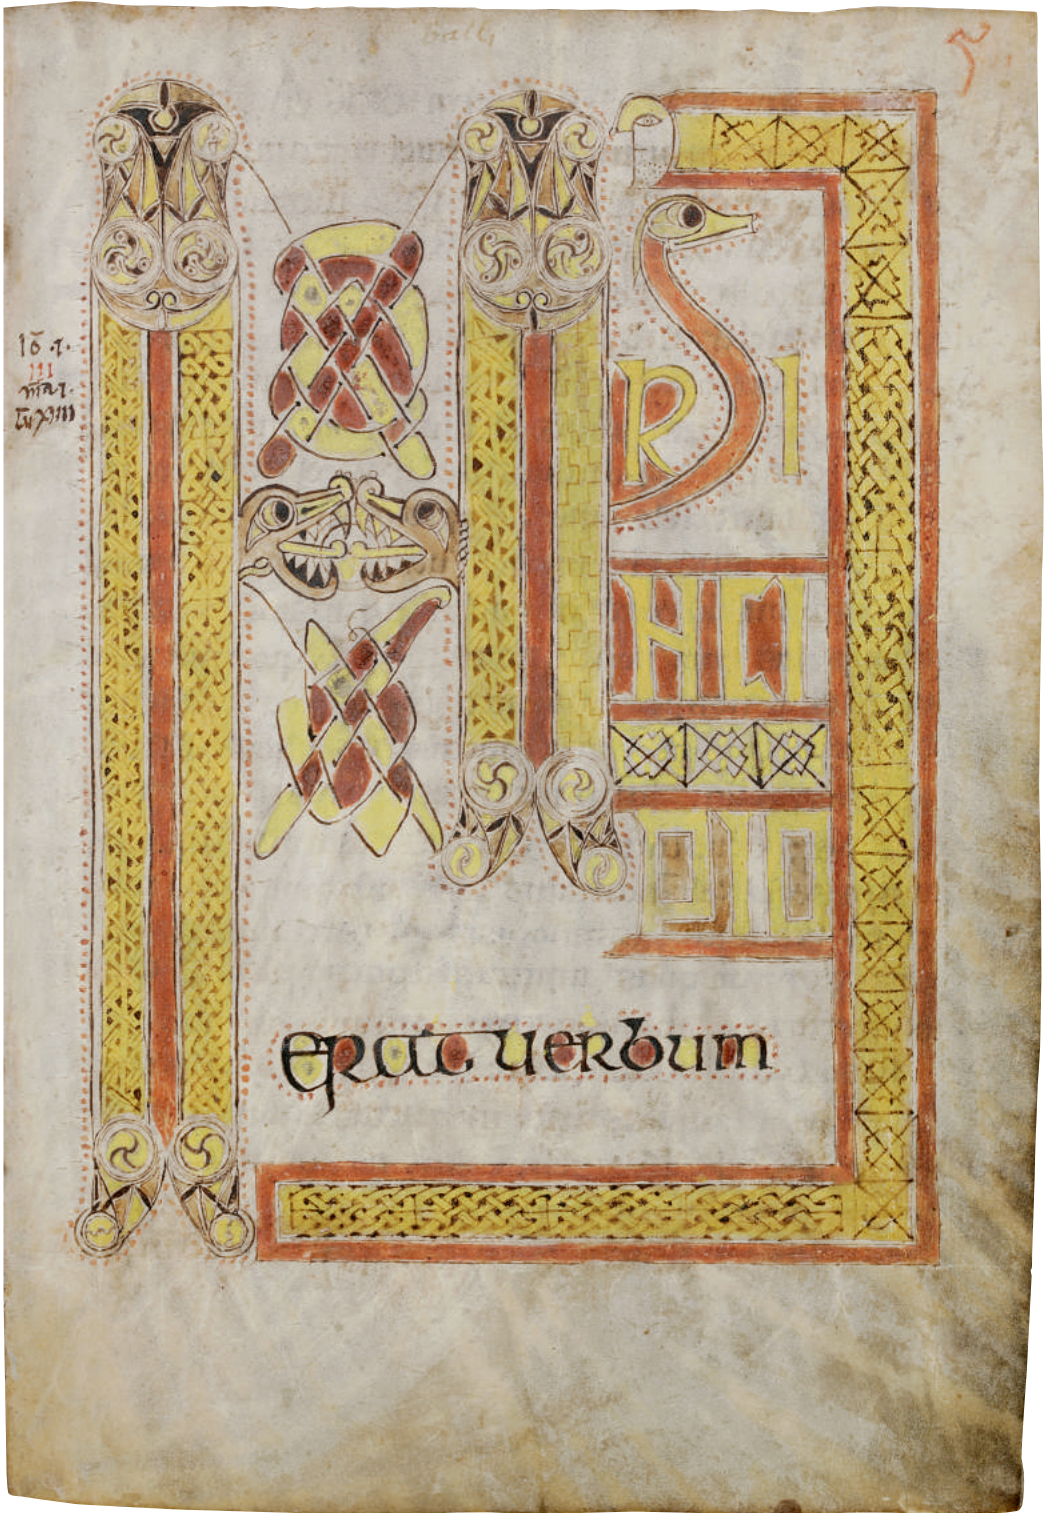 Iō .ı.
III
m̄a.ı.
lu xiiii
IN PRI
NCI
PIO
erat uerbum